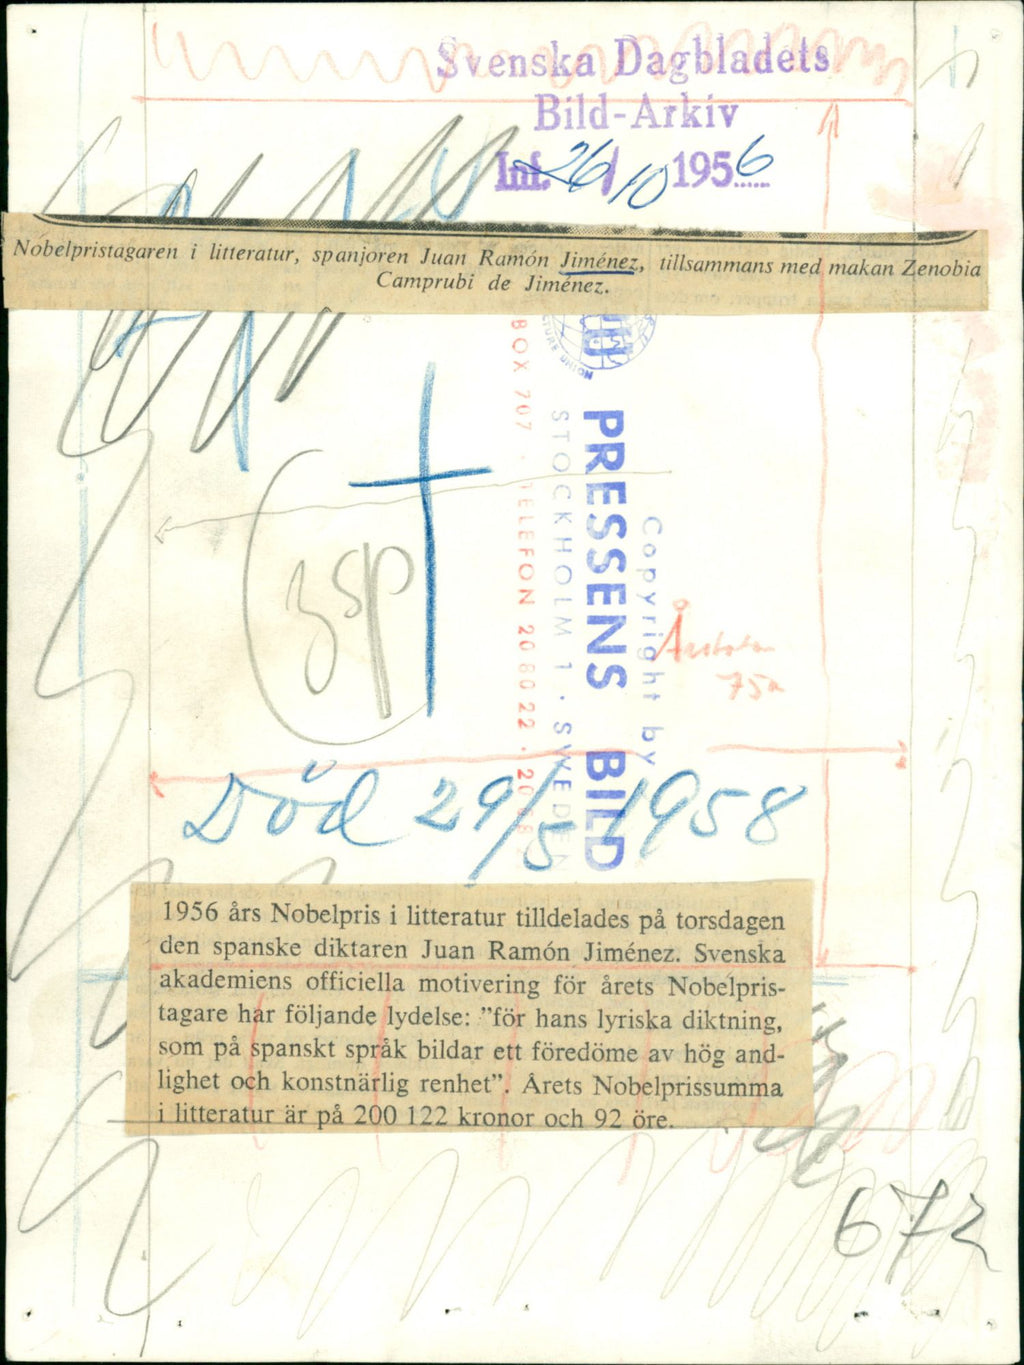 Svenska Dagbladets
Bild-Arkiv
Inf. 26/10 1956
Nobelpristagaren i litteratur, spanjoren Juan Ramón Jiménez, tillsammans med makan Zenobia
Camprubi de Jiménez.
PICTURE UNION
Copyright by
PRESSENS BILD
STOCKHOLM 1 · SWEDEN
BOX 707 · TELEFON 20 80 22 · 20
3sp
75a
Död 29/5 1958
1956 års Nobelpris i litteratur tilldelades på torsdagen
den spanske diktaren Juan Ramón Jiménez. Svenska
akademiens officiella motivering för årets Nobelpris-
tagare har följande lydelse: ”för hans lyriska diktning,
som på spanskt språk bildar ett föredöme av hög and-
lighet och konstnärlig renhet”. Årets Nobelprissumma
i litteratur är på 200 122 kronor och 92 öre.
672